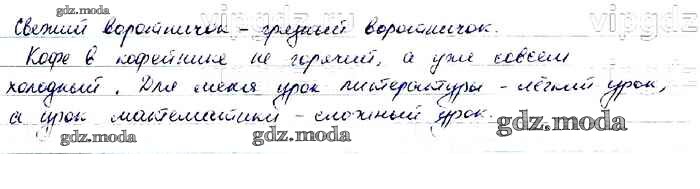 Свежий воротничок – грязный воротничок.
Кофе в кофейнике не горячий, а уже совсем
холодный. Для меня урок литературы – лёгкий урок,
а урок математики – сложный урок.
vipgdz
vipgdz
gdz.moda
gdz.moda
gdz.moda
gdz.moda